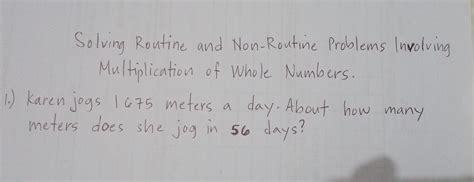 Solving Routine and Non-Routine Problems Involving
Multiplication of Whole Numbers.
1.) Karen jogs 1675 meters a day. About how many
meters does she jog in 56 days?